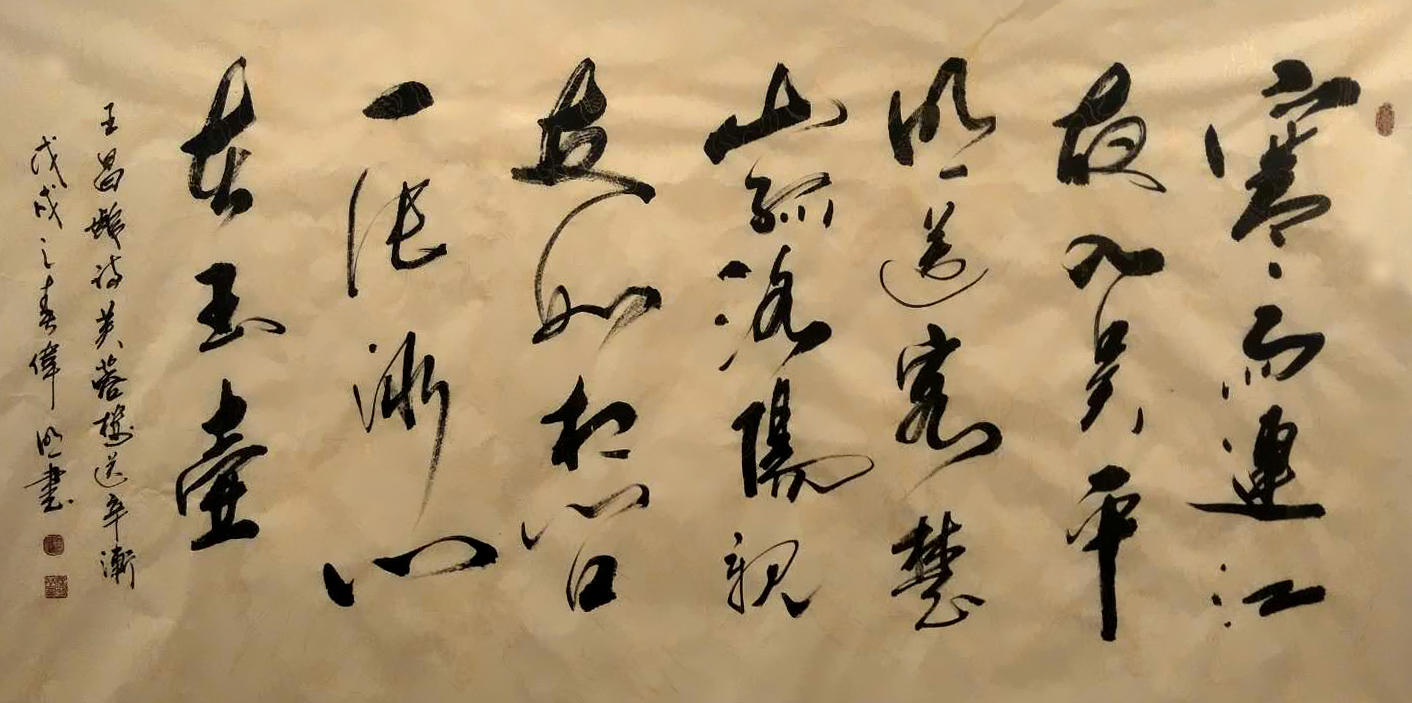 寒雨連江
夜入吳平
明送客楚
山孤洛陽親
友如相問
一片冰心
在玉壺
王昌齡詩芙蓉樓送辛漸
戊戌之春偉明書